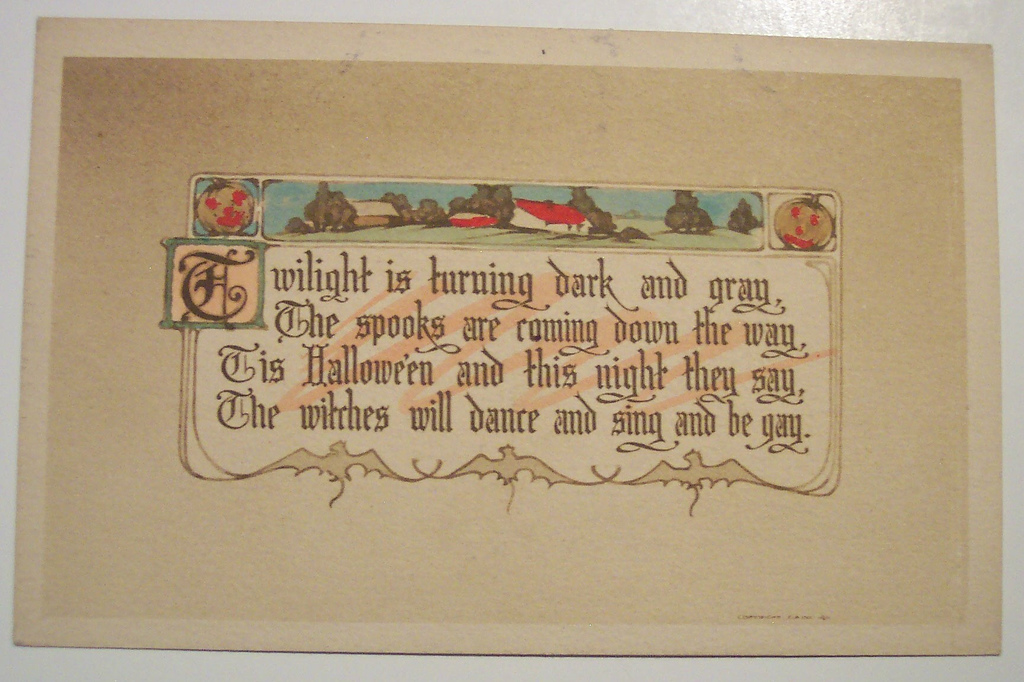 Twilight is turning dark and gray,
The spooks are coming down the way,
Tis Hallowe'en and this night they say,
The witches will dance and sing and be gay.
COPYRIGHT